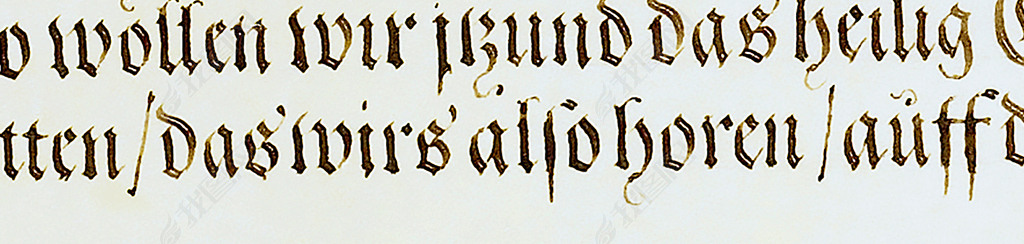 o wöllen wir jtzund das heilig
tten / das wirs also horen / auff d